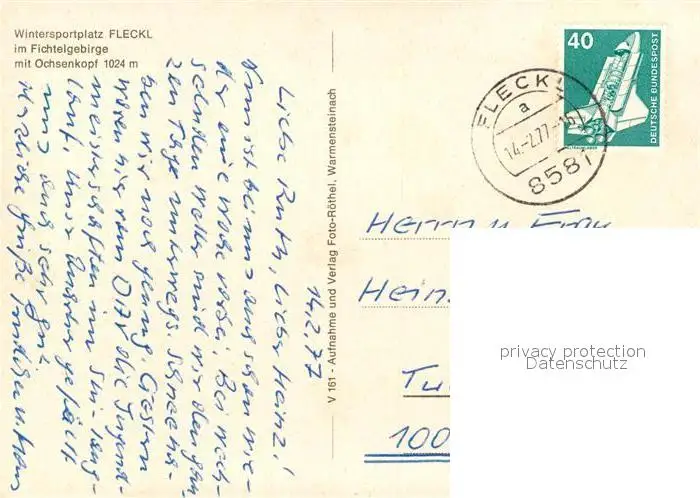 Wintersportplatz FLECKL
im Fichtelgebirge
mit Ochsenkopf 1024 m
40
DEUTSCHE BUNDESPOST
FLECKL
a
14.-2.77-
8581
V 161 - Aufnahme und Verlag Foto-Röthel, Warmensteinach
14.2.77
Liebe Ruth, Lieber Heinz!
Nun ist bei uns auch schon wie-
der eine Woche vorbei. Bei wech-
selnden Wetter sind wir den gan-
zen Tage unterwegs. Schnee ha-
ben wir noch genug. Gestern
waren hier vom die Jugend-
meisterschaften im Ski-Lang-
lauf. Unsere gefällt
uns auch sehr gut
Herzliche Grüße
Herrn u. Frau
Hein
100
privacy protection
Datenschutz